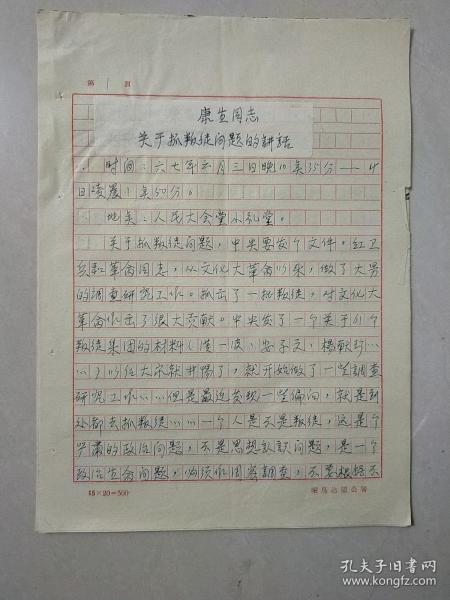 第 1 页
康生同志
关于抓叛徒问题的讲话
时间:六七年 月三日晚10点35分——4
日凌晨1点50分。
地点:人民大会堂小礼堂。
关于抓叛徒问题,中央要发个文件。红卫
兵和革命同志,从文化大革命以来,做了大量
的調查研究工作。抓出了一批叛徒,对文化大
革命作出了很大贡献。中央发了一个关于61个
叛徒集团的材料(薄一波,安子文,楊献珍……
……)以后大家就开揭了,就开始做了一些調查
研究工作……但是最近发现一些偏向,就是到
处都去抓叛徒……一个人是不是叛徒,这是个
严肃的政治问题,不是思想认识问题,是一个
政治生命问题,必须作周密調查,不要根据不
15×20=300
孔夫子旧书网
www.kongfz.com